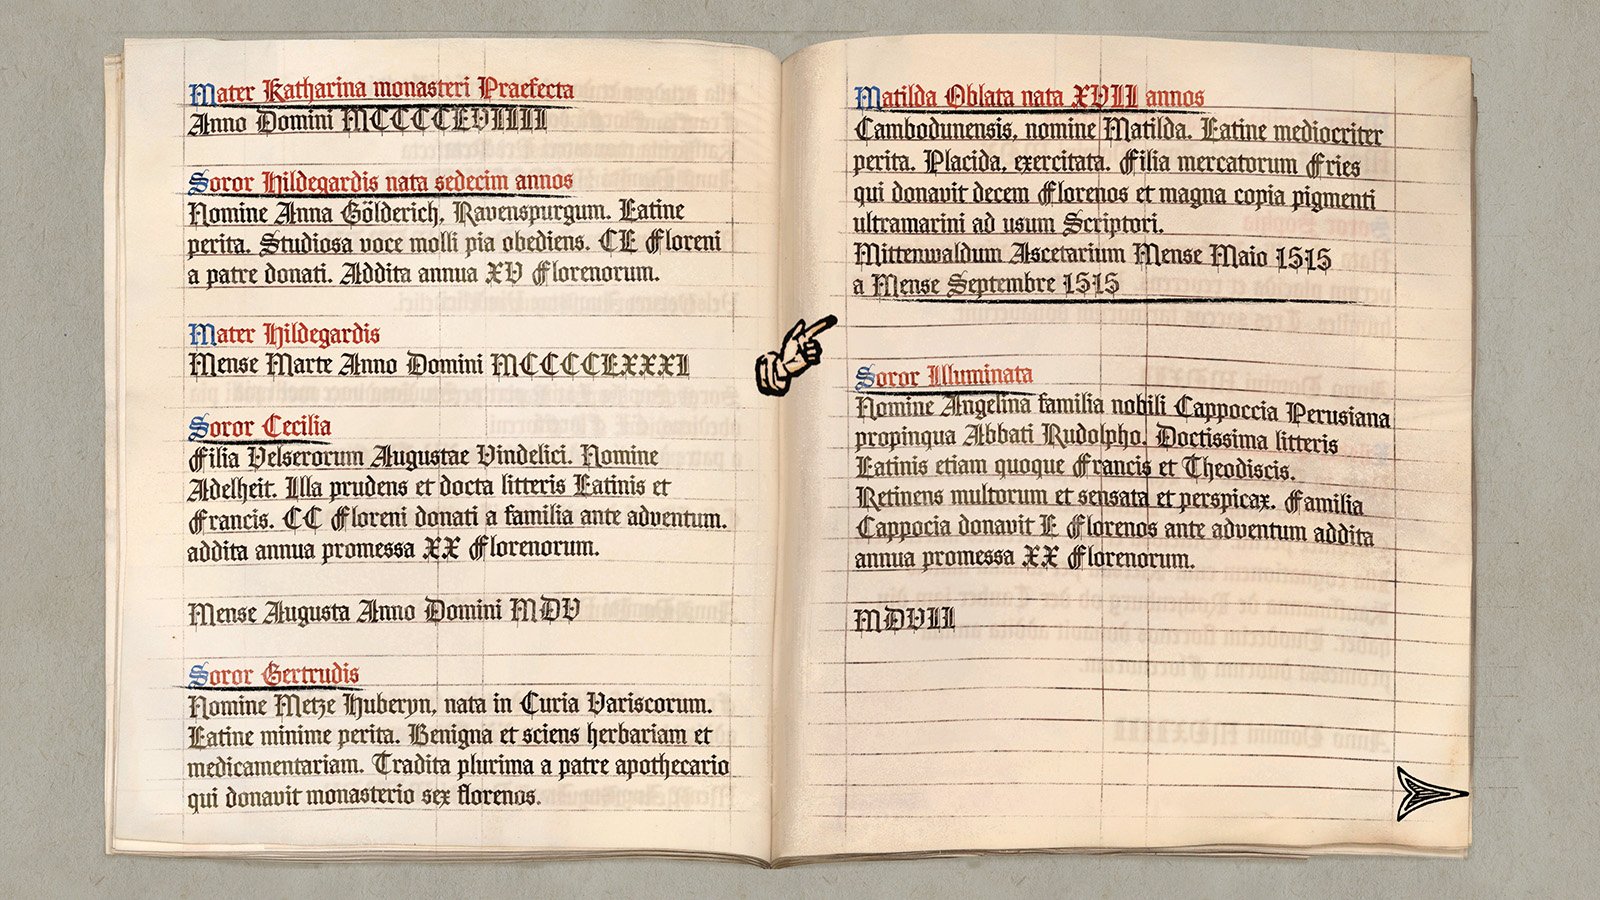 Mater Katharina monasteri Praefecta
Anno Domini MCCCCLVIIII
Soror Hildegardis nata sedecim annos
Nomine Anna Gölderich, Ravenspurgum. Latine
perita. Studiosa voce molli pia obediens. CL Floreni
a patre donati. Addita annua XV Florenorum.
Mater Hildegardis
Mense Marte Anno Domini MCCCCLXXXI
Soror Cecilia
Filia Velserorum Augustae Vindelici. Nomine
Adelheit. Illa prudens et docta litteris Latinis et
Francis. CC Floreni donati a familia ante adventum.
addita annua promessa XX Florenorum.
Mense Augusta Anno Domini MDV
Soror Gertrudis
Nomine Metze Huberyn, nata in Curia Variscorum.
Latine minime perita. Benigna et sciens herbariam et
medicamentariam. Tradita plurima a patre apothecario
qui donavit monasterio sex florenos.
Matilda Oblata nata XVII annos
Cambodunensis, nomine Matilda. Latine mediocriter
perita. Placida, exercitata. Filia mercatorum Fries
qui donavit decem Florenos et magna copia pigmenti
ultramarini ad usum Scriptori.
Mittenwaldum Ascetarium Mense Maio 1515
a Mense Septembre 1515
Soror Illuminata
Nomine Angelina familia nobili Cappoccia Perusiana
propinqua Abbati Rudolpho. Doctissima litteris
Latinis etiam quoque Francis et Theodiscis.
Retinens multorum et sensata et perspicax. Familia
Cappocia donavit L Florenos ante adventum addita
annua promessa XX Florenorum.
MDVII